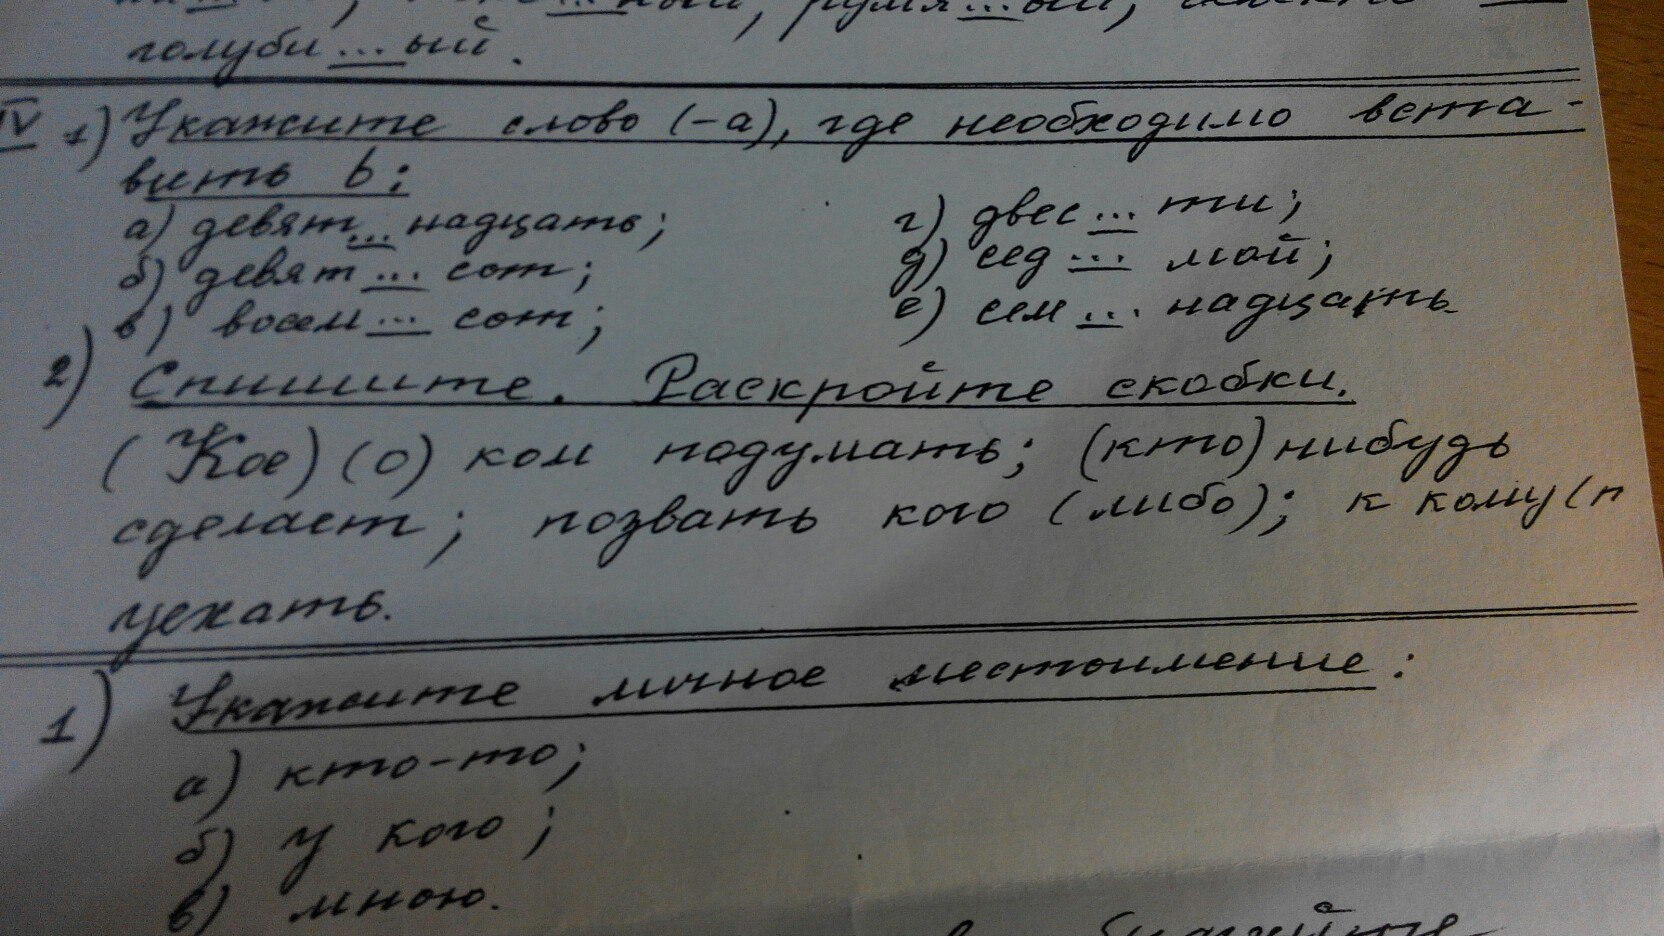 голуби...ый.
IV 1) Укажите слово (-а), где необходимо вста-
вить ь:
а) девят...надцать;
б) девят...сот;
в) восем...сот;
г) двес...ти;
д) сед...мой;
е) сем...надцать.
2) Спишите. Раскройте скобки.
(Кое) (о) ком подумать; (кто) нибудь
сделает; позвать кого (либо); к кому (п
уехать.
1) Укажите личное местоимение:
а) кто-то;
б) у кого;
в) мною.